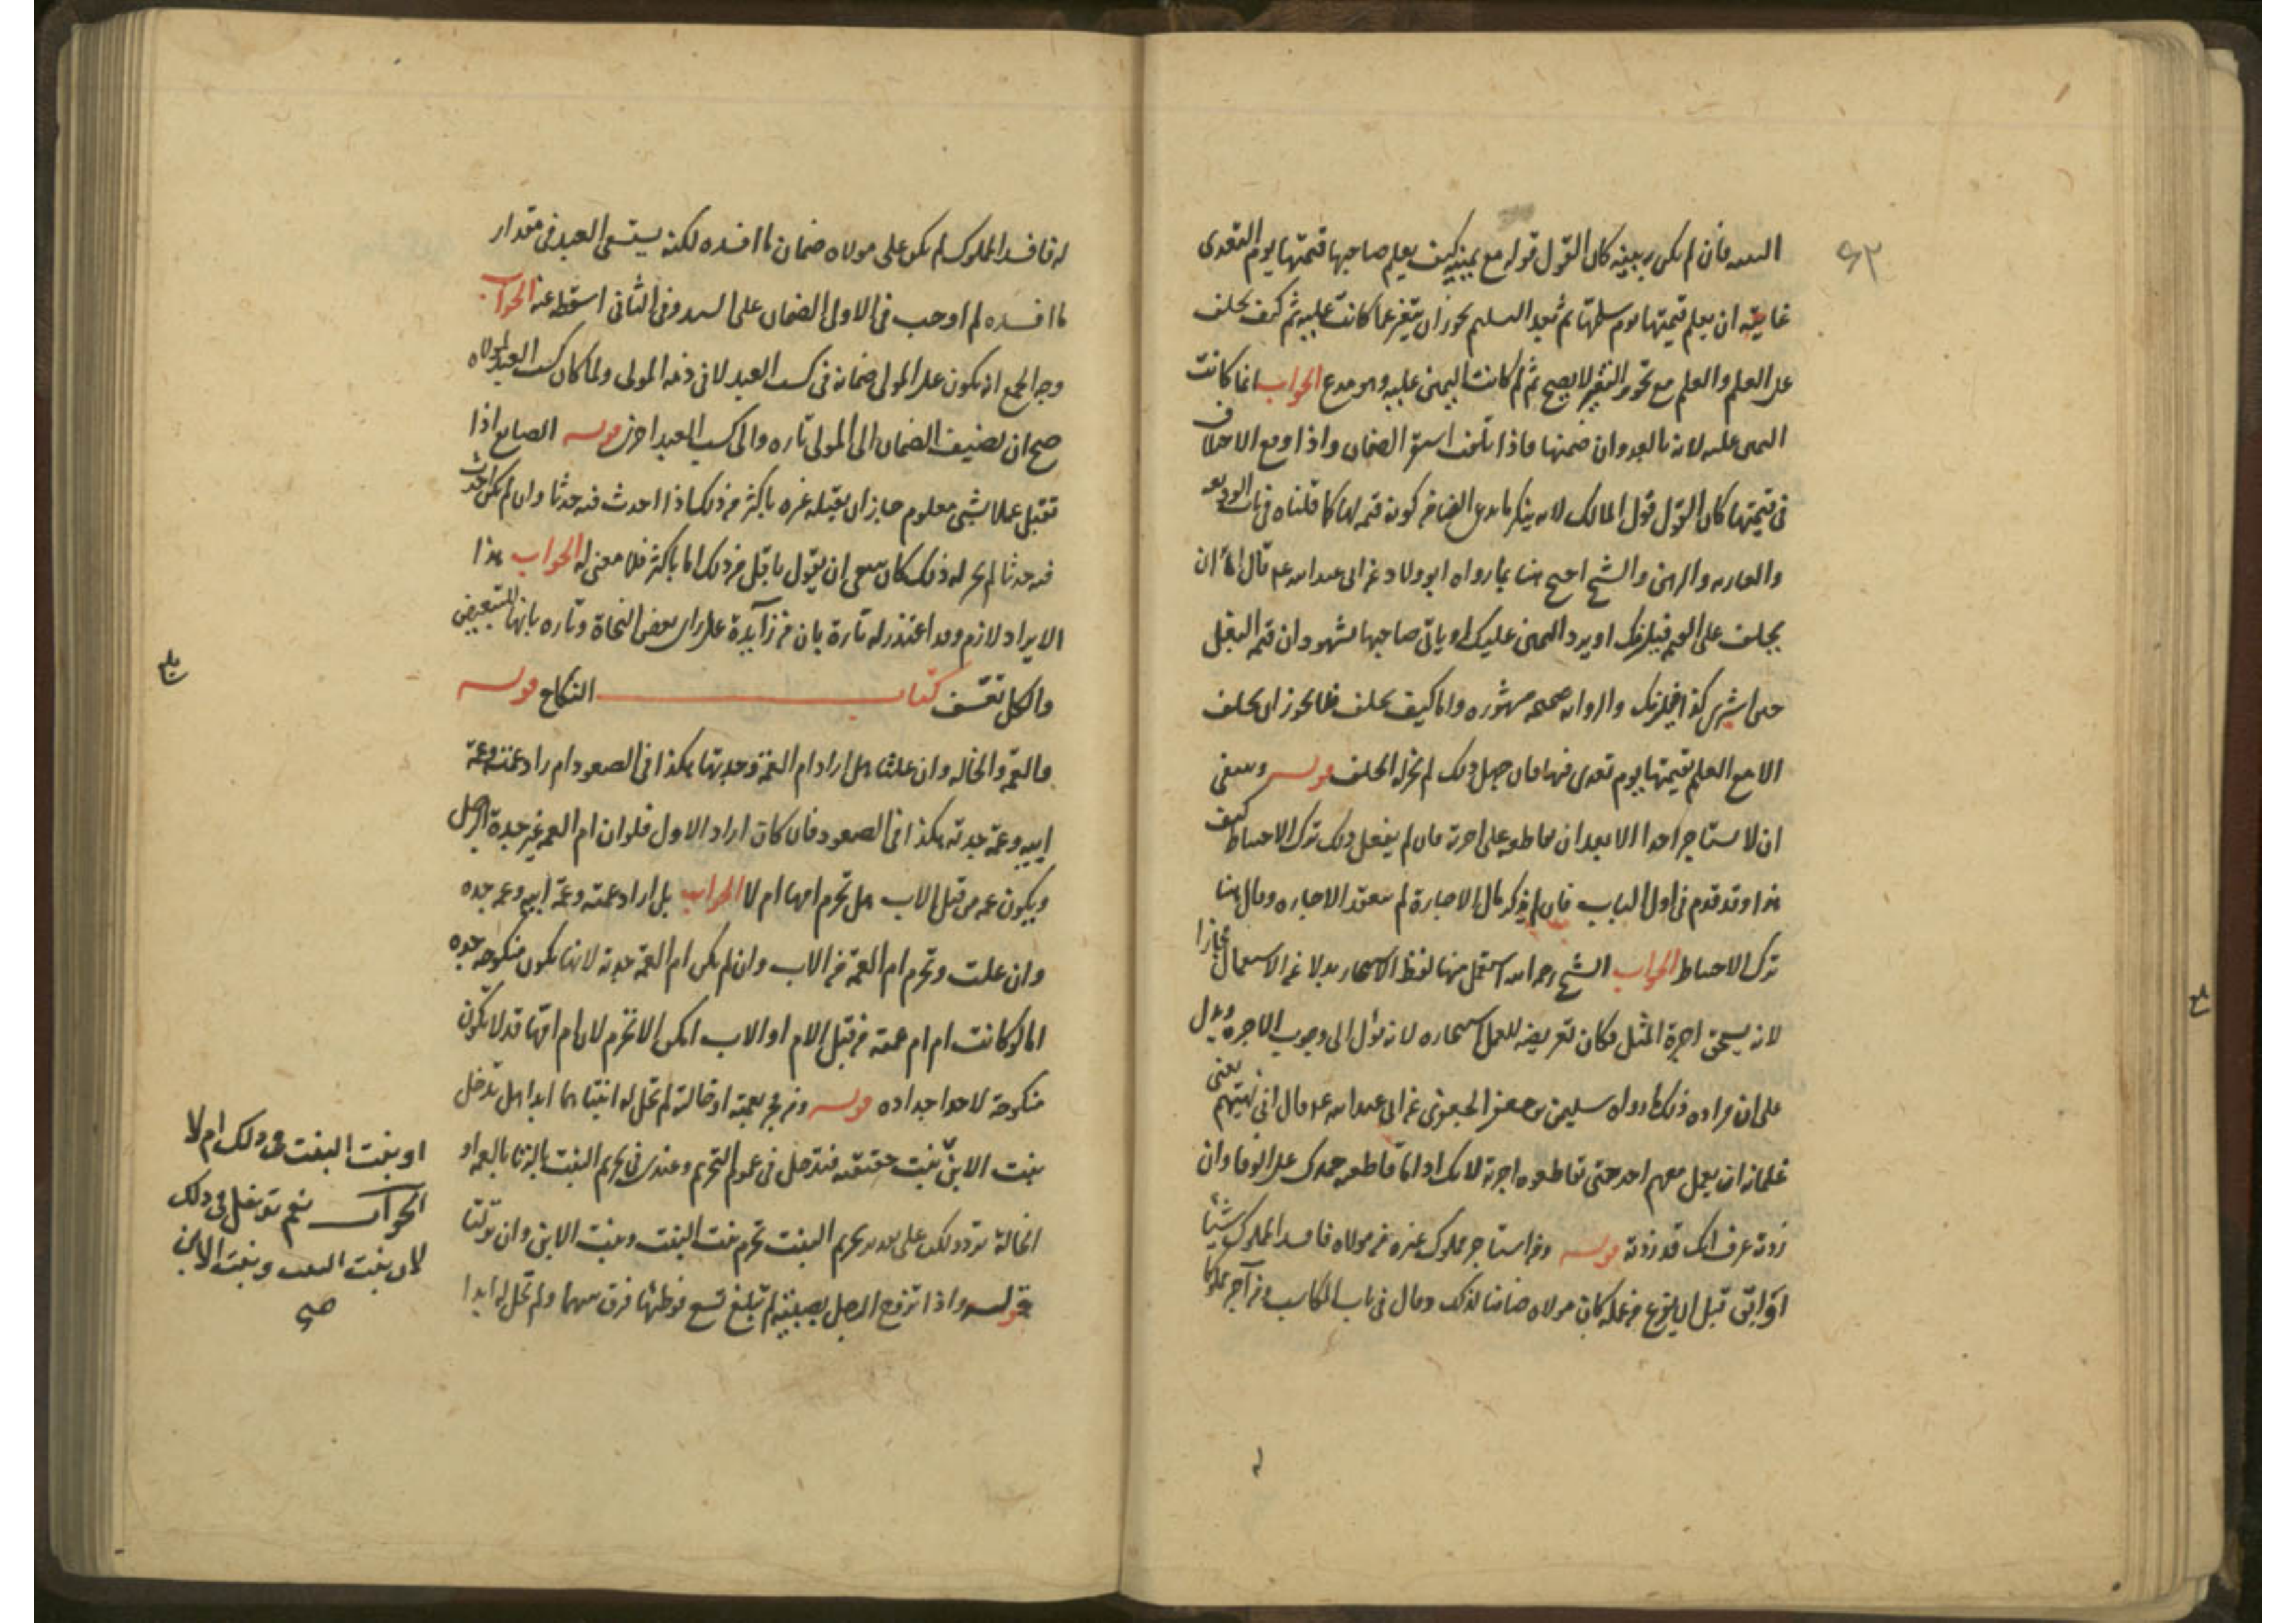 ٩٢
البينه فان لم يكن بينه كان القول قوله مع يمينه كيف يعلم صاحبها قيمتها يوم التعدى
غايته ان يعلم قيمتها يوم سلمها ثم بعد التسليم يجوز ان يتغير عما كانت عليه ثم كيف يحلف
على العلم والعلم مع تجويز التغير لا يصح ثم لم كانت اليمين عليه وهو مدع الجواب انما كانت
اليمين عليه لانه بالعدوان ضمنها فاذا تلفت استقر الضمان واذا وقع الاختلاف
فى قيمتها كان القول قول المالك لانه ينكر ما يدعى الضامن كونه قيمه لها كما قلناه فى باب الوديعه
والعاريه والرهن والشيخ احتج هنا بما رواه ابو ولاد عن ابى عبد الله ع قال اما ان
يحلف على القيم فيلزمك او يرد اليمين عليك او ياتى صاحبها بشهود ان قيمه البغل
حين اشترى كذا فيلزمك والروايه صحيحه مشهوره واما كيف يحلف فلا يجوز ان يحلف
الا مع العلم بقيمتها يوم تعدى فيها فان جهل ذلك لم يجز له الحلف قوله وينبغى
ان لا يستاجر احدا الا بعد ان يقاطعه على اجرته فان لم يفعل ذلك ترك الاحتياط كيف
هذا وقد قدم فى اول الباب فان لم يذكر مال الاجارة لم تنعقد الاجاره وقال هنا
ترك الاحتياط الجواب الشيخ رحمه الله استعمل هنا لفظ الاستيجار بدلا عن الاستعمال مجازا
لانه يستحق اجرة المثل فكان تعريضه للعمل استيجاره لانه يؤل الى وجوب الاجره ويدل
على ان مراده ذلك ما رواه سليمن بن جعفر الجعفرى عن ابى عبد الله ع قال انى نهيتهم يعنى
غلمانه ان يعمل معهم احد حتى تقاطعوه اجرته لانك اذا ما قاطعته حمدك على الوفا وان
زدته عرف انك قد زدته قوله ومن استاجر مملوك غيره من مولاه فافسد المملوك شيئا
او ابق قبل ان يفرغ من عمله كان مولاه ضامنا لذلك وقال فى باب المكاسب ومن آجر مملوكا
له فافسد المملوك لم يكن على مولاه ضمان ما افسده لكنه يستسعى العبد فى مقدار
ما افسده لم اوجب فى الاولى الضمان على السيد وفى الثانى اسقطه عنه الجواب
وجه الجمع ان يكون على المولى ضمانه فى كسب العبد لا فى ذمه المولى ولما كان كسب العبد لمولاه
صح ان يضيف الضمان الى المولى تاره والى كسب العبد اخرى قوله الصانع اذا
تقبل عملا بشئ معلوم جاز ان يقبله غيره باكثر من ذلك اذا احدث فيه حدثا وان لم يكن احدث
فيه حدثا لم يجز له ذلك كان ينبغى ان يقول باقل من ذلك اما باكثر فلا معنى له الجواب هذا
الايراد لازم وقد اعتذر له تارة بان من زآيدة على راى بعض النحاة وتاره بانها للتبعيض
والكل تعسف كتاب النكاح قوله
والعمة والخاله وان علتا هل اراد ام العمة وجدتها هكذا فى الصعود ام اراد عمته وعمة
ابيه وعمة جدته هكذا فى الصعود فان كان اراد الاول فلو ان ام العمه غير جدة الرجل
ويكون عمه من قبل الاب هل تحرم امها ام لا الجواب بل اراد عمته وعمة ابيه وعمه جده
وان علت وتحرم ام العمة من الاب وان لم يكن ام العمة جدته لانها تكون منكوحه جده
اما لو كانت ام ام عمته من قبل الام او الاب امكن الا تحرم لان ام امها قد لا تكون
منكوحة لاحد اجداده قوله ومن فجر بعمته او خالته لم تحل له ابنتاهما ابدا هل تدخل
بنت الابن بنت حقيقه فتدخل فى عموم التحريم وعندى فى تحريم البنت بالزنا بالعمه او
الخالة تردد لكن على تقدير تحريم البنت تحرم بنت البنت وبنت الابن وان نزلتا
قوله واذا تزوج الرجل بصبيه لم تبلغ تسع فوطئها فرق بينهما ولم تحل له ابدا
او بنت البنت فى ذلك ام لا
الجواب نعم تدخل فى ذلك
لان بنت البنت وبنت الابن
صح